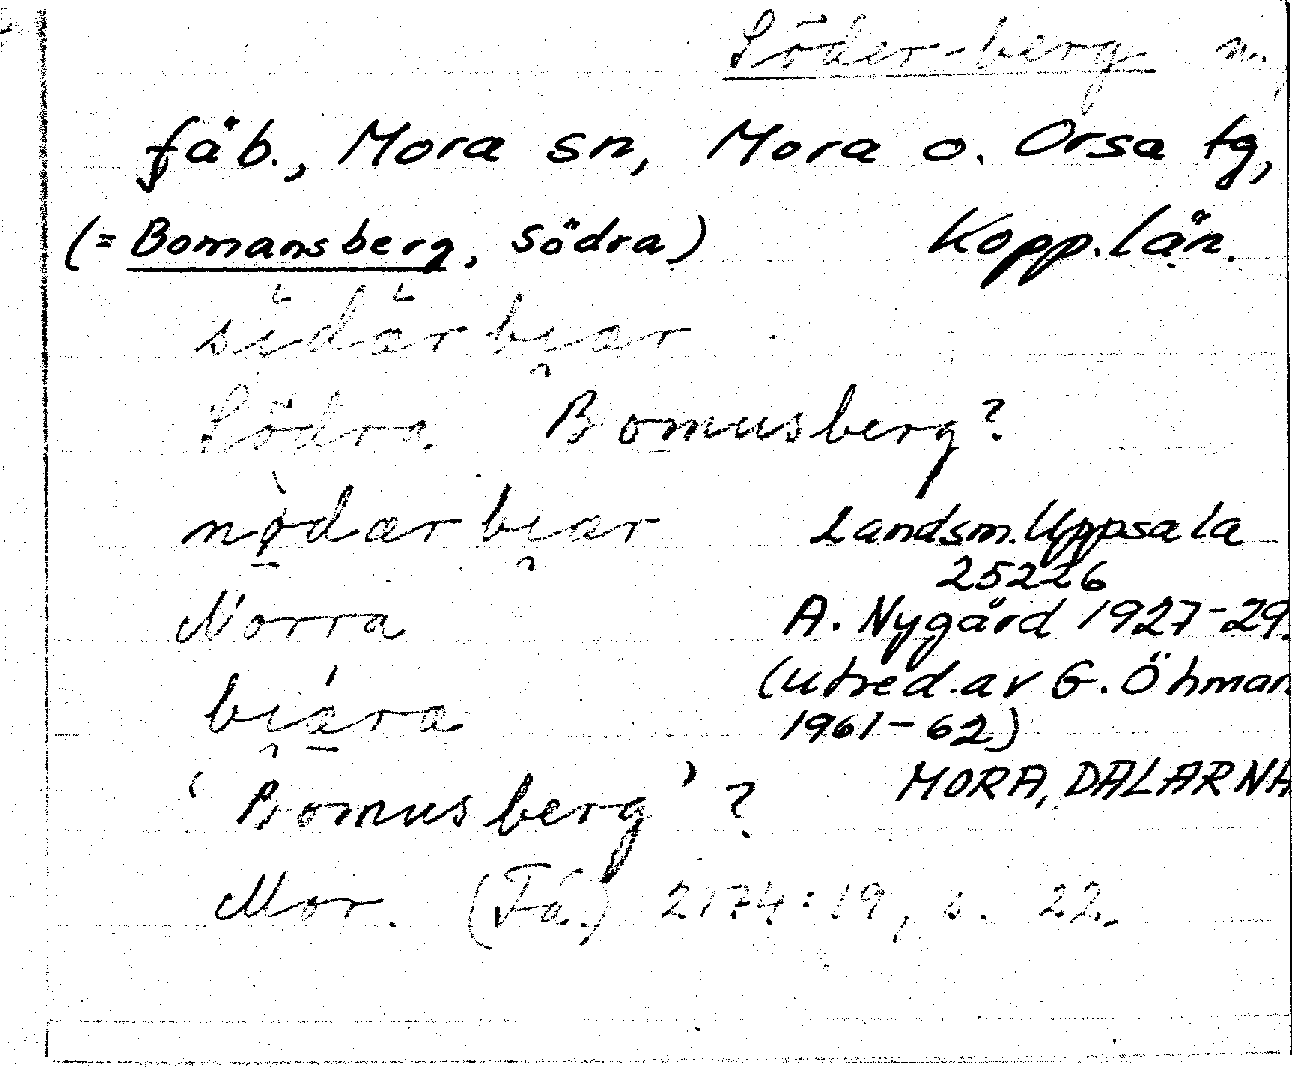 Söder-berg n.,
fäb., Mora sn, Mora o. Orsa tg,
(= Bomansberg, Södra) Kopp.län.
sidärbi̯ar
Södra Bomusberg?
nòdarbi̯ar
Landsm. Uppsala
25226
Norra
A. Nygård 1927-29.
bi̯ára
(utred. av G. Öhman
1961-62)
MORA, DALARNA
'Bomusberg'?
Mor. (Få.) 2174:19, s. 22.